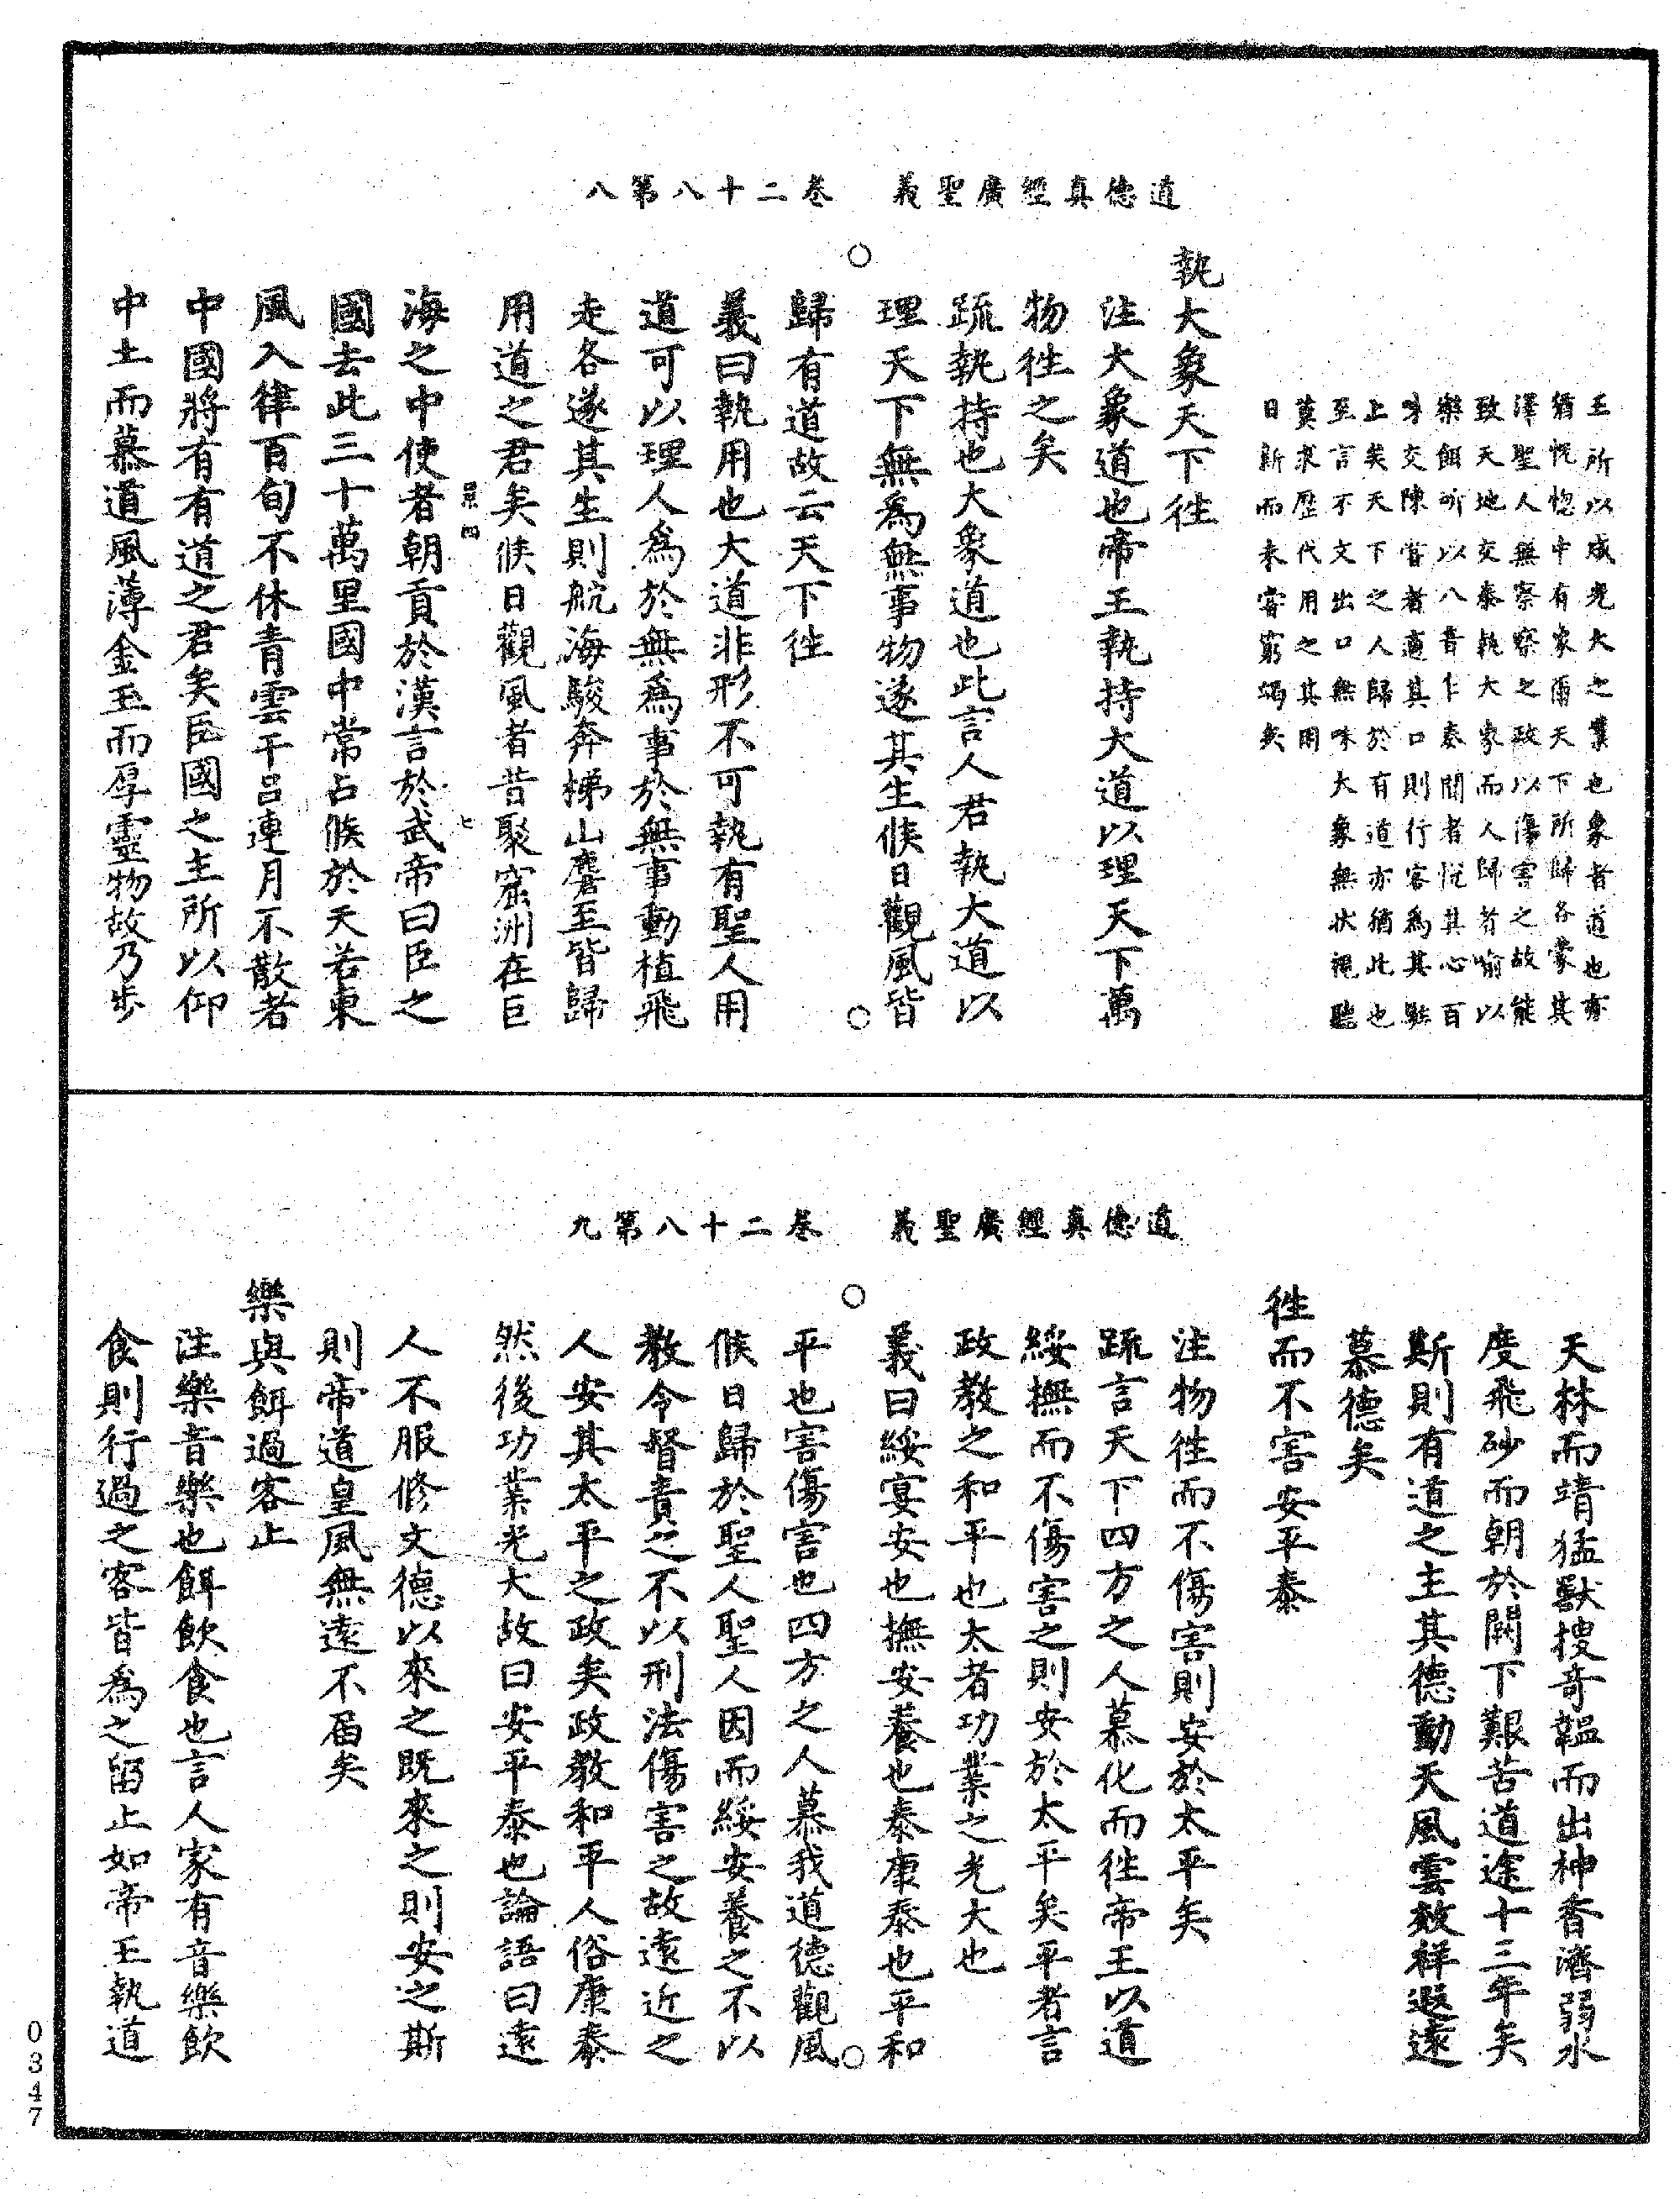 道德真經廣聖義　卷二十八第八
王所以成光大之業也象者道也亦
猶恍惚中有象爾天下所歸各蒙其
澤聖人無察察之政以傷害之故能
致天地交泰執大象而人歸者喻以
樂餌所以八音乍奏聞者悅其心百
味交陳嘗者適其口則行客為其駐
上矣天下之人歸於有道亦猶此也
至言不文出口無味大象無狀視聽
莫求歷代用之其用
日新而未甞窮竭矣
執大象天下往
注大象道也帝王執持大道以理天下萬
物往之矣
疏執持也大象道也此言人君執大道以
理天下無為無事物遂其生候日觀風皆
歸有道故云天下往
義曰執用也大道非形不可執有聖人用
道可以理人為於無為事於無事動植飛
走各遂其生則航海駿奔梯山麏至皆歸
用道之君矣候日觀風者昔聚窟洲在巨
四
七
海之中使者朝貢於漢言於武帝曰臣之
國去此三十萬里國中常占候於天若東
風入律百旬不休青雲干呂連月不散者
中國將有有道之君矣臣國之主所以仰
中土而慕道風薄金玉而厚靈物故乃步
道德真經廣聖義　卷二十八第九
天林而靖猛獸搜奇韞而出神香濟弱水
度飛砂而朝於闕下艱苦道途十三年矣
斯則有道之主其德動天風雲效祥遐遠
慕德矣
往而不害安平泰
注物往而不傷害則安於太平矣
疏言天下四方之人慕化而往帝王以道
綏撫而不傷害之則安於太平矣平者言
政教之和平也太者功業之光大也
義曰綏宴安也撫安養也泰康泰也平和
平也害傷害也四方之人慕我道德觀風
候日歸於聖人聖人因而綏安養之不以
教令督責之不以刑法傷害之故遠近之
人安其太平之政矣政教和平人俗康泰
然後功業光大故曰安平泰也論語曰遠
人不服修文德以來之既來之則安之斯
則帝道皇風無遠不屆矣
樂與餌過客止
注樂音樂也餌飲食也言人家有音樂飲
食則行過之客皆為之留止如帝王執道
0347